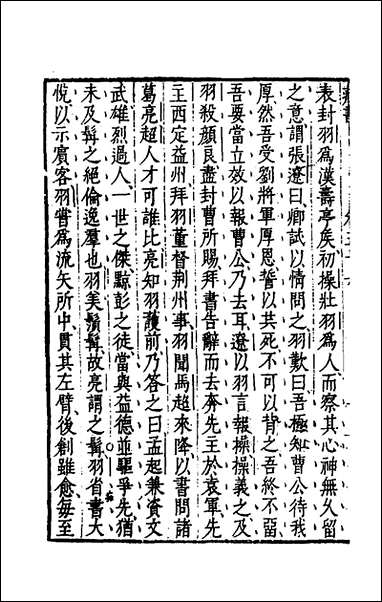 表封羽為漢壽亭矦初操壯羽為人而察其心神無久留
之意謂張遼曰卿試以情問之羽歎曰吾極知曹公待我
厚然吾受劉將軍厚恩誓以共死不可以背之吾終不畱
吾要當立效以報曹公乃去耳遼以羽言報操操義之及
羽殺顏良盡封曹所賜拜書告辭而去奔先主於袁軍先
主西定益州拜羽董督荆州事羽聞馬超來降以書問諸
葛亮超人才可誰比亮知羽護前乃答之曰孟起兼資文
武雄烈過人一世之傑黥彭之徒當與益德並驅爭先猶
未及髯之絕倫逸羣也羽美鬚髯故亮謂之髯羽省書大
悅以示賓客羽嘗為流矢所中貫其左臂後創雖愈每至